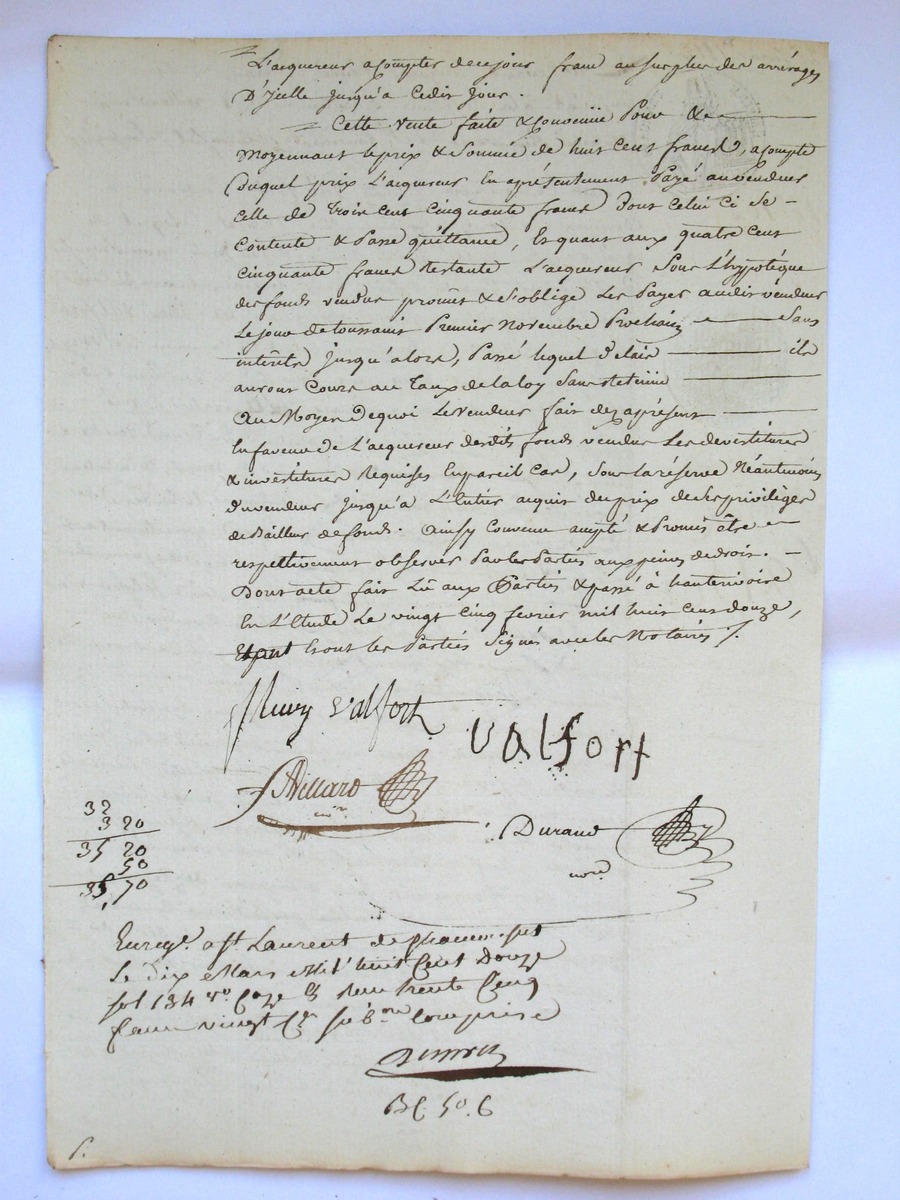 L'acquereur a Compter de ce jour franc au surplus des arrérages
D'Icelle jusqu'a Cedit jour.
Cette Vente faite & Convenüe Pour &
Moyennant le prix & Somme de huit Cent francs, a compte
Duquel prix L'acquereur En a présentement Payé au vendeur
Celle de trois Cent Cinquante francs Dont Celui Ci Se
Contente & Passe quittance, Et quant aux quatre Cent
Cinquante francs restants L'acquereur Sous L'hypotéque
des fonds vendus promet & S'oblige Les Payer audit vendeur
Le jour de toussaint Premier Novembre Prochain Sans
intérêts jusqu'alors, Passé lequel Délais ils
auront Cours au Taux de la loy Sans retenüe
Au Moyen De quoi Le vendeur fait dez aprésent
En faveur de L'acquereur desdits fonds vendus Les devestitures
& investitures Requises En pareil Cas, Sous la réserve Néantmoins
du vendeur jusqu'a L'Entier acquit du prix de Ses privilèges
de Bailleur de fonds. Ainsy Convenu accepté & Promis être
respectivement observer Par les Parties aux peines de droit.
Dont acte fait Lû aux Parties & passé à hauterivoire
En L'Etude Le vingt Cinq fevrier mil huit Cent douze,
Et ont les Parties Signés avec les Notaires ./.
fleury Valfort
Valfort
Durand
nore
32
3 20
35 20
50
35,70
Enregé. a St Laurent de chamousset
Le Dix Mars Mil huit Cent Douze
fol 134 vo Caze
franc vingt Ce. so 6me Comprise